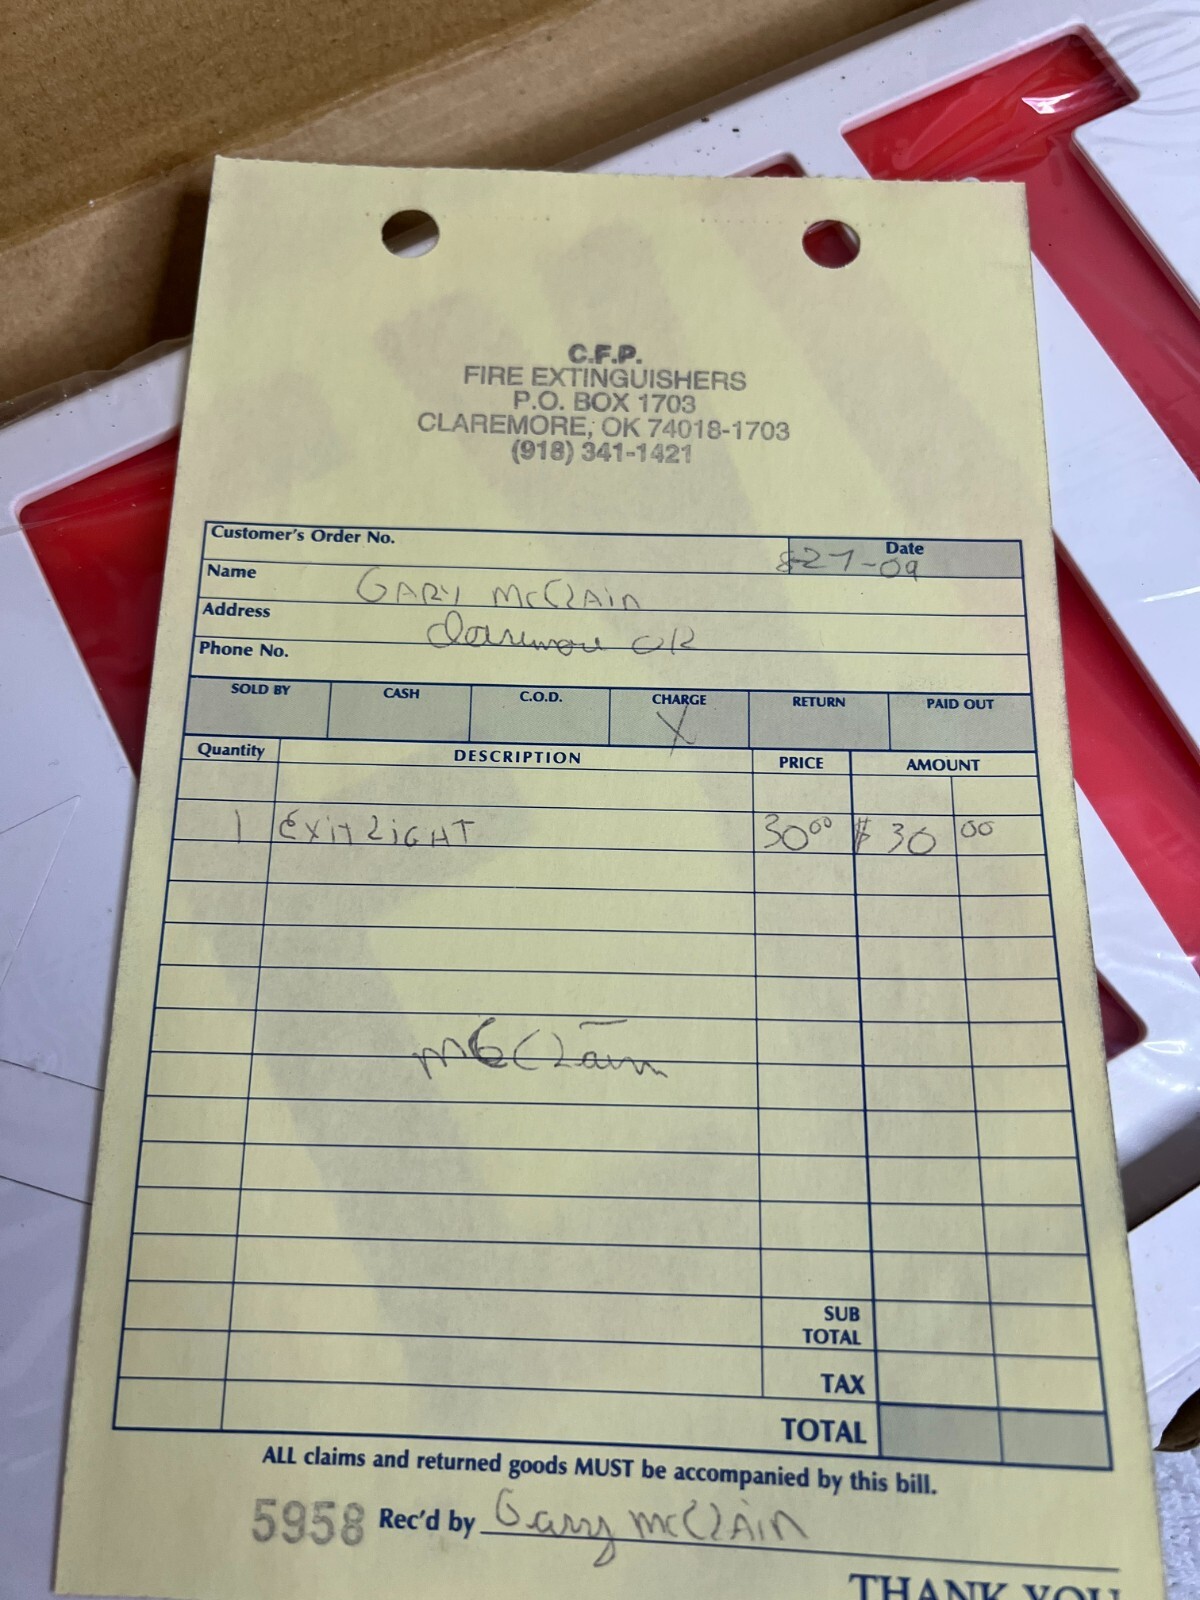 C.F.P.
FIRE EXTINGUISHERS
P.O. BOX 1703
CLAREMORE, OK 74018-1703
(918) 341-1421
Customer's Order No.
Date
8-27-09
Name GARY McClAin
Address Claremore OK
Phone No.
SOLD BY CASH C.O.D. CHARGE RETURN PAID OUT
X
Quantity DESCRIPTION PRICE AMOUNT
1 EXiT LiGHT 30 00 $ 30 00
McClain
SUB
TOTAL
TAX
TOTAL
ALL claims and returned goods MUST be accompanied by this bill.
5958 Rec'd by Gary McClAin
THANK YOU